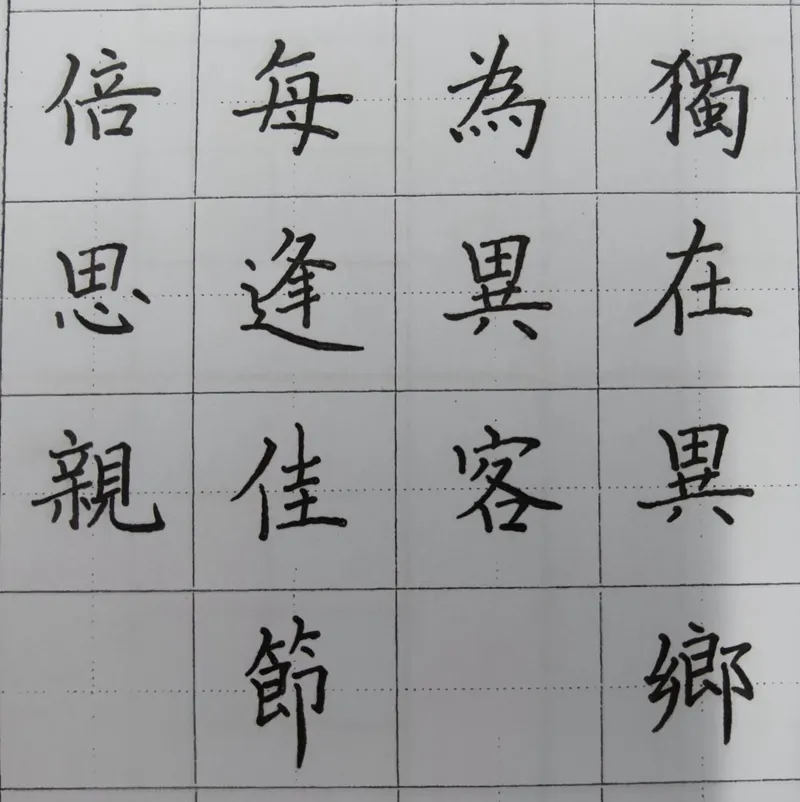 獨在異鄉
為異客
每逢佳節
倍思親